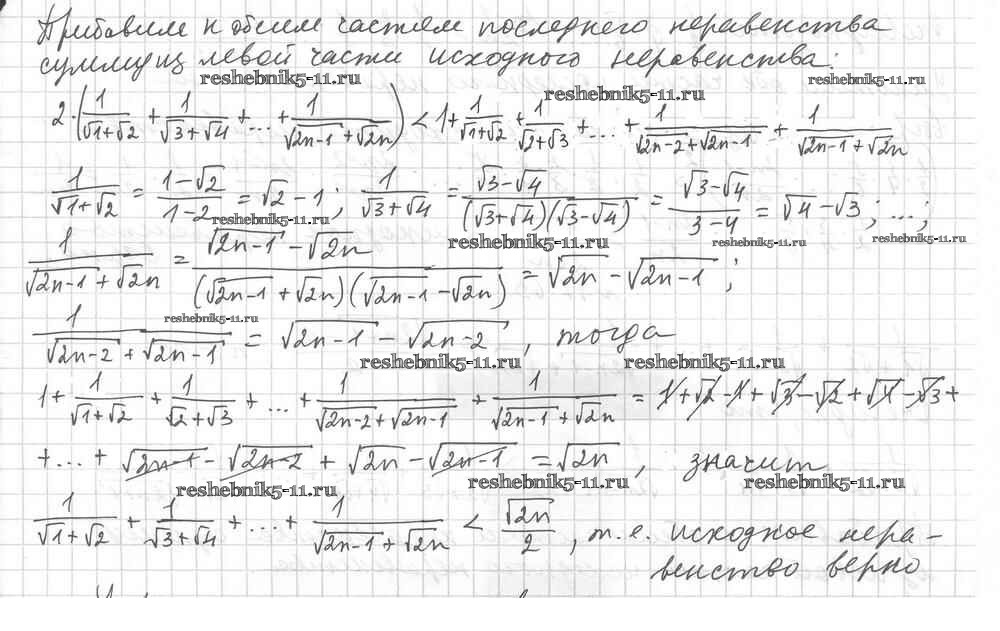 Прибавим к обеим частям последнего неравенства
сумму из левой части исходного неравенства:
reshebnik5-11.ru
reshebnik5-11.ru
2·(1/(√1+√2) + 1/(√3+√4) + ... + 1/(√2n-1 + √2n)) < 1 + 1/(√1+√2) + 1/(√2+√3) + ... + 1/(√2n-2 + √2n-1) + 1/(√2n-1 + √2n)
1/(√1+√2) = (1-√2)/(1-2) = √2 - 1; 1/(√3+√4) = (√3-√4)/((√3+√4)(√3-√4)) = (√3-√4)/(3-4) = √4 - √3; ...;
reshebnik5-11.ru
reshebnik5-11.ru
reshebnik5-11.ru
reshebnik5-11.ru
1/(√2n-1 + √2n) = (√2n-1 - √2n)/((√2n-1 + √2n)(√2n-1 - √2n)) = √2n - √2n-1;
reshebnik5-11.ru
1/(√2n-2 + √2n-1) = √2n-1 - √2n-2, тогда
reshebnik5-11.ru
reshebnik5-11.ru
1 + 1/(√1+√2) + 1/(√2+√3) + ... + 1/(√2n-2 + √2n-1) + 1/(√2n-1 + √2n) = 1+√2-1+√3-√2+√4-√3+
+...+ √2n-1 - √2n-2 + √2n - √2n-1 = √2n, значит
reshebnik5-11.ru
reshebnik5-11.ru
reshebnik5-11.ru
1/(√1+√2) + 1/(√3+√4) + ... + 1/(√2n-1 + √2n) < √2n/2, т.е. исходное нера-
венство верно